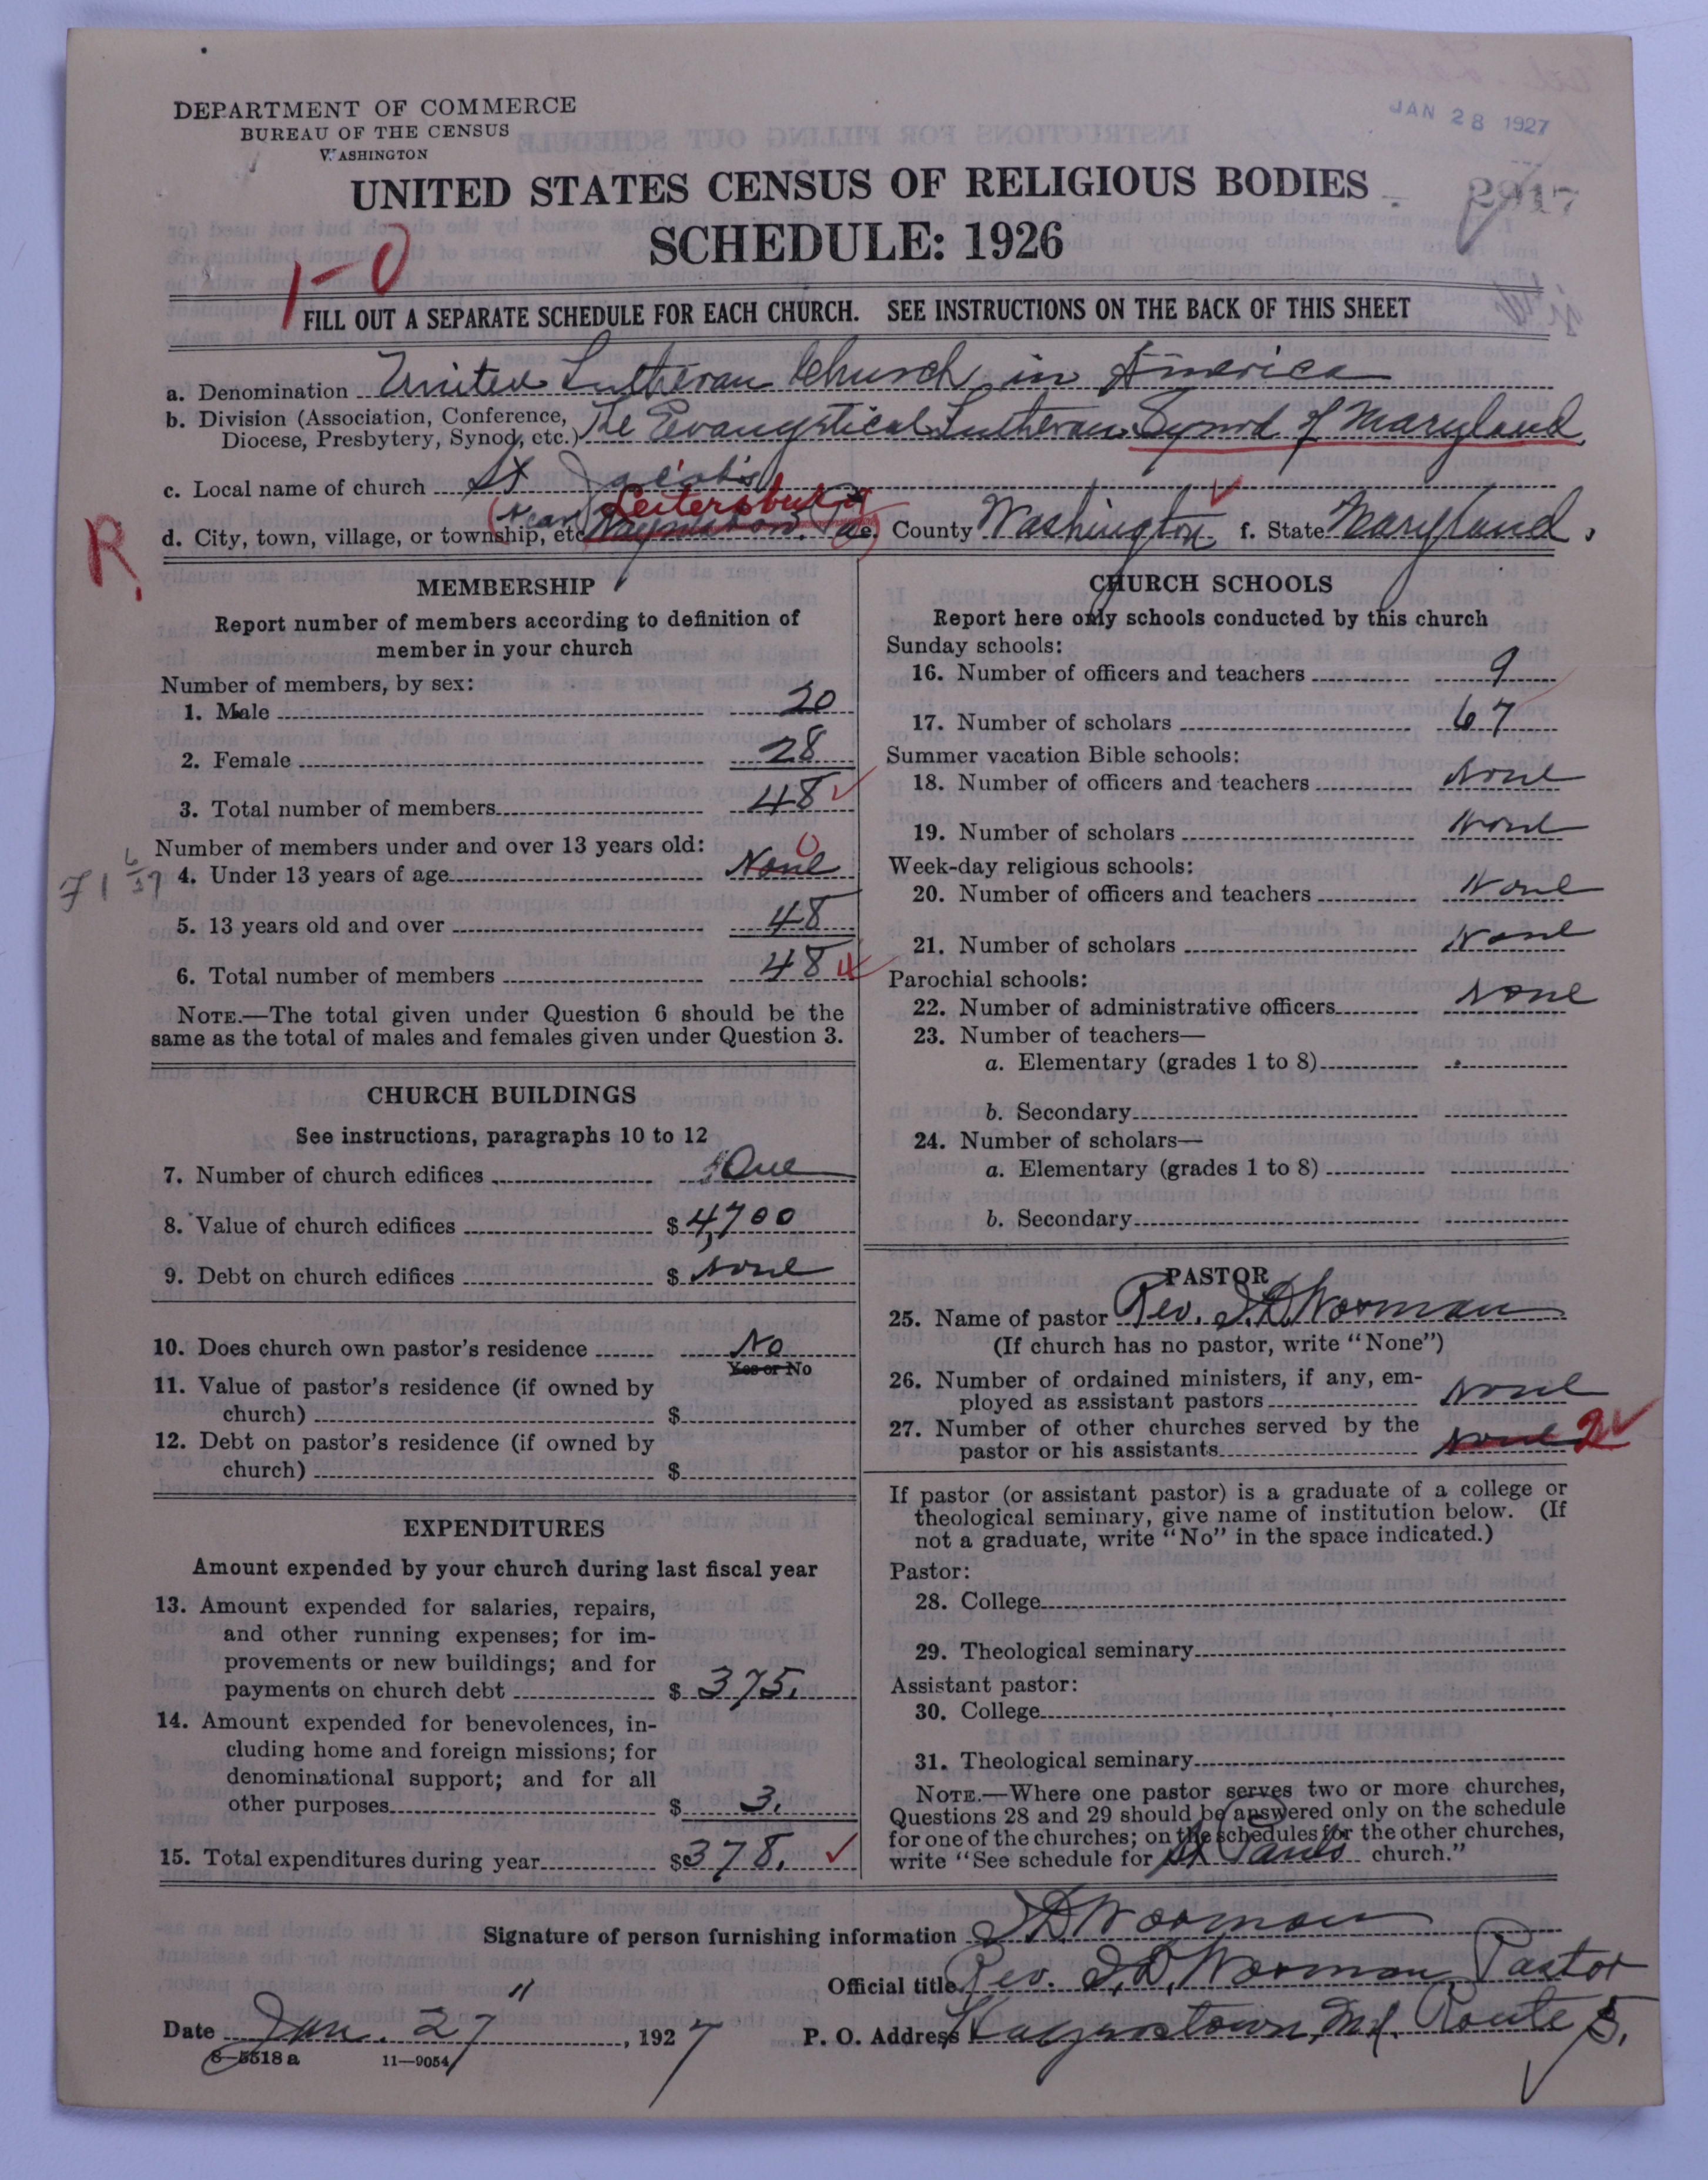 DEPARTMENT OF COMMERCE
BUREAU OF THE CENSUS
WASHINGTON
JAN 28 1927
UNITED STATES CENSUS OF RELIGIOUS BODIES
2917
SCHEDULE: 1926
1-0
FILL OUT A SEPARATE SCHEDULE FOR EACH CHURCH. SEE INSTRUCTIONS ON THE BACK OF THIS SHEET
a. Denomination United Lutheran Church in America
b. Division (Association, Conference, Diocese, Presbytery, Synod, etc.) The Evangelical Lutheran Synod of Maryland
c. Local name of church St Jacob's
(near) Leitersburg
d. City, town, village, or township, etc. Hagerstown. e. County Washington f. State Maryland.
R.
MEMBERSHIP
Report number of members according to definition of
member in your church
Number of members, by sex:
1. Male 20
2. Female 28
3. Total number of members 48
Number of members under and over 13 years old:
4. Under 13 years of age None 0
5. 13 years old and over 48
6. Total number of members 48
NOTE.—The total given under Question 6 should be the
same as the total of males and females given under Question 3.
CHURCH BUILDINGS
See instructions, paragraphs 10 to 12
7. Number of church edifices One
8. Value of church edifices $ 4,700
9. Debt on church edifices $ None
10. Does church own pastor's residence No
Yes or No
11. Value of pastor's residence (if owned by
church) $
12. Debt on pastor's residence (if owned by
church) $
EXPENDITURES
Amount expended by your church during last fiscal year
13. Amount expended for salaries, repairs,
and other running expenses; for im-
provements or new buildings; and for
payments on church debt $ 375.
14. Amount expended for benevolences, in-
cluding home and foreign missions; for
denominational support; and for all
other purposes $ 3.
15. Total expenditures during year $ 378.
CHURCH SCHOOLS
Report here only schools conducted by this church
Sunday schools:
16. Number of officers and teachers 9
17. Number of scholars 67
Summer vacation Bible schools:
18. Number of officers and teachers None
19. Number of scholars None
Week-day religious schools:
20. Number of officers and teachers None
21. Number of scholars None
Parochial schools:
22. Number of administrative officers None
23. Number of teachers—
a. Elementary (grades 1 to 8)
b. Secondary
24. Number of scholars—
a. Elementary (grades 1 to 8)
b. Secondary
PASTOR
25. Name of pastor Rev. S.D. Worman
(If church has no pastor, write "None")
26. Number of ordained ministers, if any, em-
ployed as assistant pastors None
27. Number of other churches served by the
pastor or his assistants None 2
If pastor (or assistant pastor) is a graduate of a college or
theological seminary, give name of institution below. (If
not a graduate, write "No" in the space indicated.)
Pastor:
28. College
29. Theological seminary
Assistant pastor:
30. College
31. Theological seminary
NOTE.—Where one pastor serves two or more churches,
Questions 28 and 29 should be answered only on the schedule
for one of the churches; on the schedules for the other churches,
write "See schedule for St Pauls church."
Signature of person furnishing information S D Worman
Official title Rev. S.D. Worman, Pastor
Date Jan. 27", 1927 P. O. Address Hagerstown, Md. Route 5.
8—5518 a 11—9054